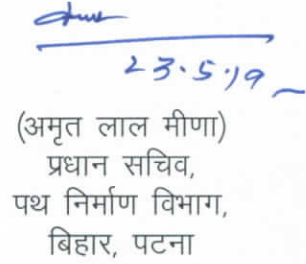 23.5.19
(अमृत लाल मीणा)
प्रधान सचिव,
पथ निर्माण विभाग,
बिहार, पटना